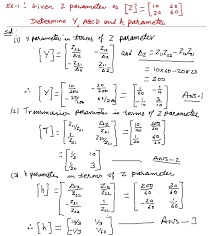 Ex-1: Given Z parameter as [Z] = [10 20
20 60]
Determine Y, ABCD and h parameter
Sol
(1) Y parameter in terms of Z parameter
[Y] = [Z22/Δz -Z12/Δz
-Z21/Δz Z11/Δz] and Δz = Z11Z22 - Z12Z21
= 10×60 - 20×20
= 200
Ans-1
(2) Transmission parameter in terms of Z parameter
[T] = [Z11/Z21 Δz/Z21
1/Z21 Z22/Z21] = [10/20 200/20
1/20 60/20]
= [1/2 10
1/20 3] Ans-2
(3) h parameter in terms of Z parameter
[h] = [Δz/Z22 Z12/Z22
-Z21/Z22 1/Z22] = [200/60 20/60
-20/60 1/60]
∴ [h] = [10/3 1/3
-1/3 1/60] Ans-3